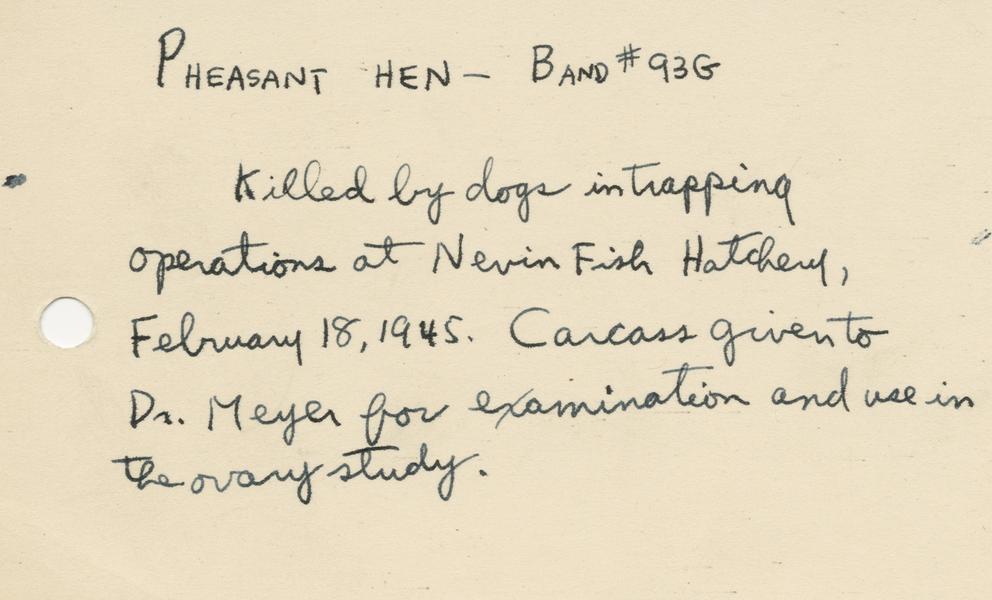 PHEASANT HEN — BAND #93G
Killed by dogs in trapping
operations at Nevin Fish Hatchery,
February 18, 1945. Carcass given to
Dr. Meyer for examination and use in
the ovary study.